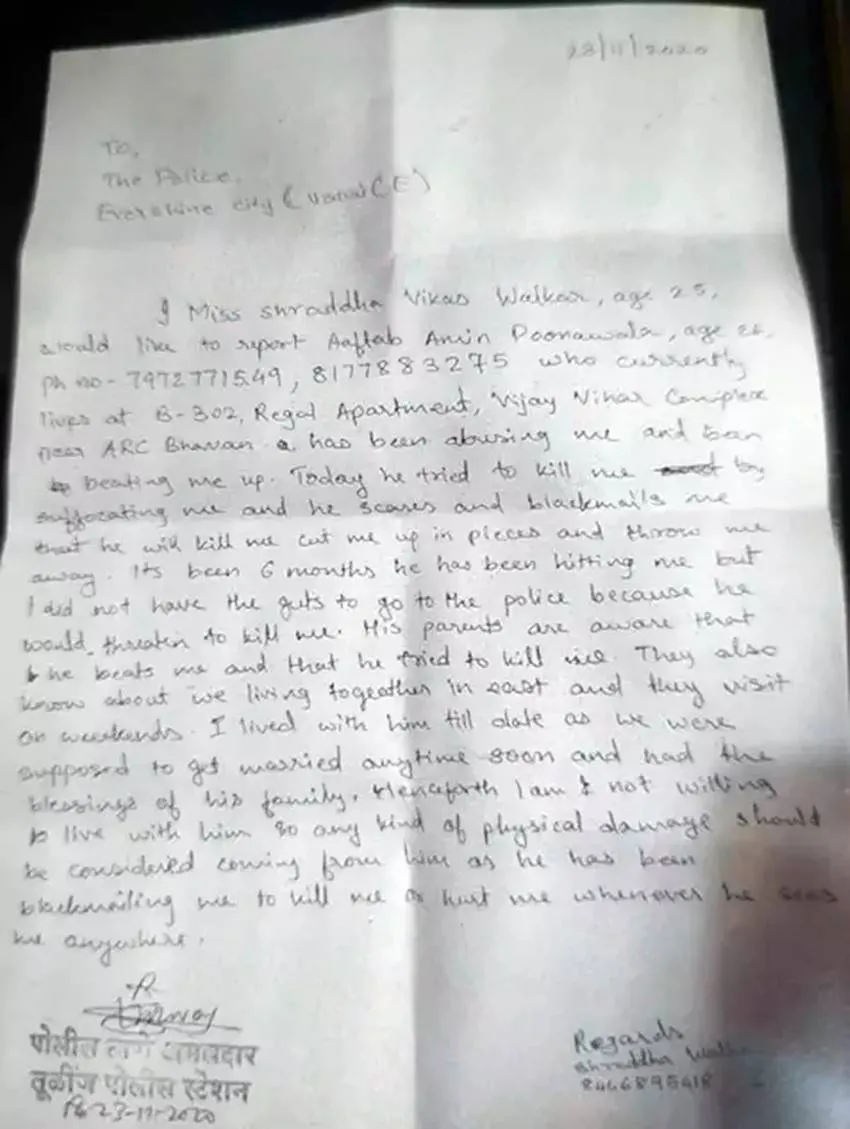 23/11/2020
To,
The Police.
Evershine city (Vasai (E)
I Miss Shraddha Vikas Walkar, age 25,
would like to report Aaftab Amin Poonawala, age 26,
ph no - 7972771549, 8177883275 who currently
lives at B-302, Regal Apartment, Vijay Vihar Complex
near ARC Bhavan has been abusing me and been
beating me up. Today he tried to kill me by
suffocating me and he scares and blackmails me
that he will kill me cut me up in pieces and throw me
away. Its been 6 months he has been hitting me but
I did not have the guts to go to the police because he
would threaten to kill me. His parents are aware that
he beats me and that he tried to kill me. They also
know about we living togeather in east and they visit
on weekends. I lived with him till date as we were
supposed to get married anytime soon and had the
blessings of his family. Henceforth I am not willing
to live with him so any kind of physical damage should
be considered coming from him as he has been
blackmailing me to kill me or hurt me whenever he sees
me anywhere.
पोलीस ठाणे अमलदार
तूळींज पोलीस स्टेशन
23-11-2020
Regards
Shraddha Walkar
8446895418